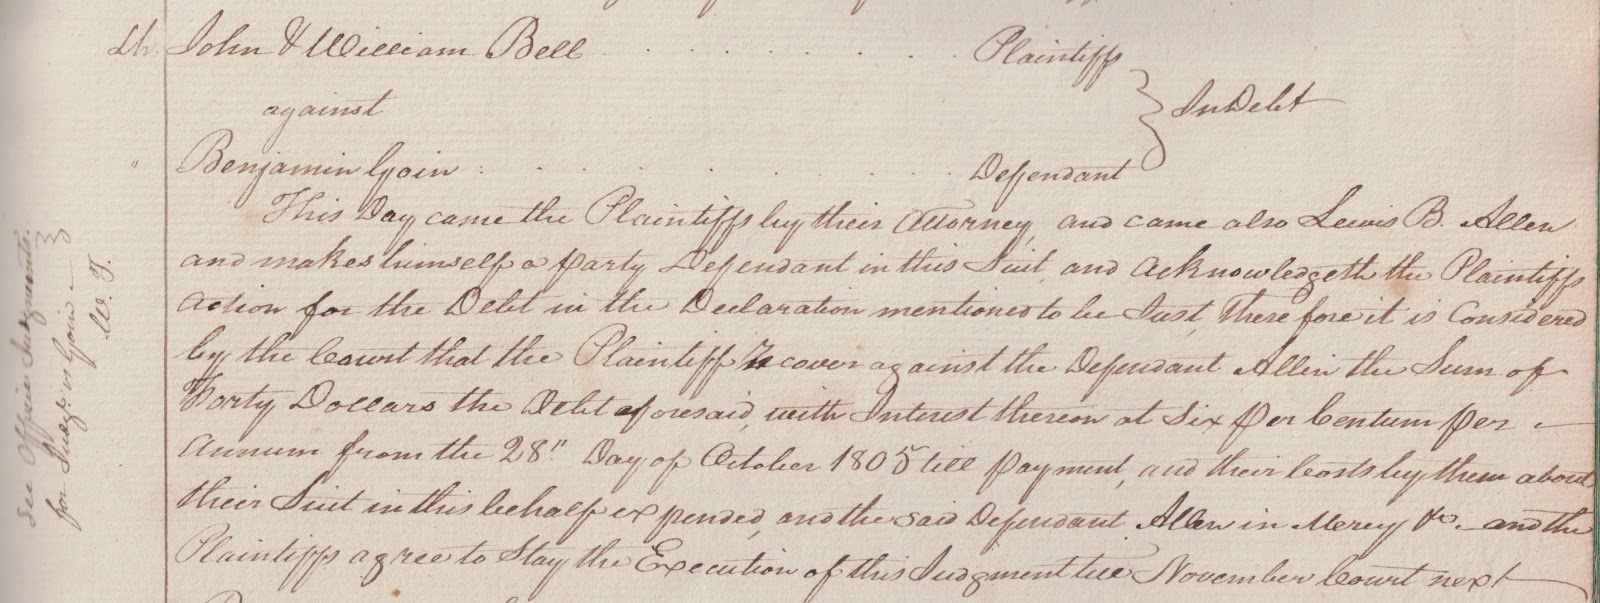 Lh. John & William Bell . . . . . . . . Plaintiffs
against } In Debt
" Benjamin Goin : . . . . . . . . Defendant
This Day came the Plaintiffs by their Attorney, and came also Lewis B. Allen
and makes himself a party Defendant in this Suit, and acknowledgeth the Plaintiffs
action for the Debt in the Declaration mentioned to be Just, Therefore it is Considered
by the Court that the Plaintiff Recover against the Defendant Allen the Sum of
Forty Dollars the Debt aforesaid, with Interest thereon at Six per Centum per
annum from the 28" Day of October 1805 till payment, and their Costs by them about
their Suit in this behalf expended, and the said Defendant Allen in Mercy &c. and the
Plaintiffs agree to Stay the Execution of this Judgment till November Court next
See Office Judgments.
for Judgt. vs Goin
W. T.